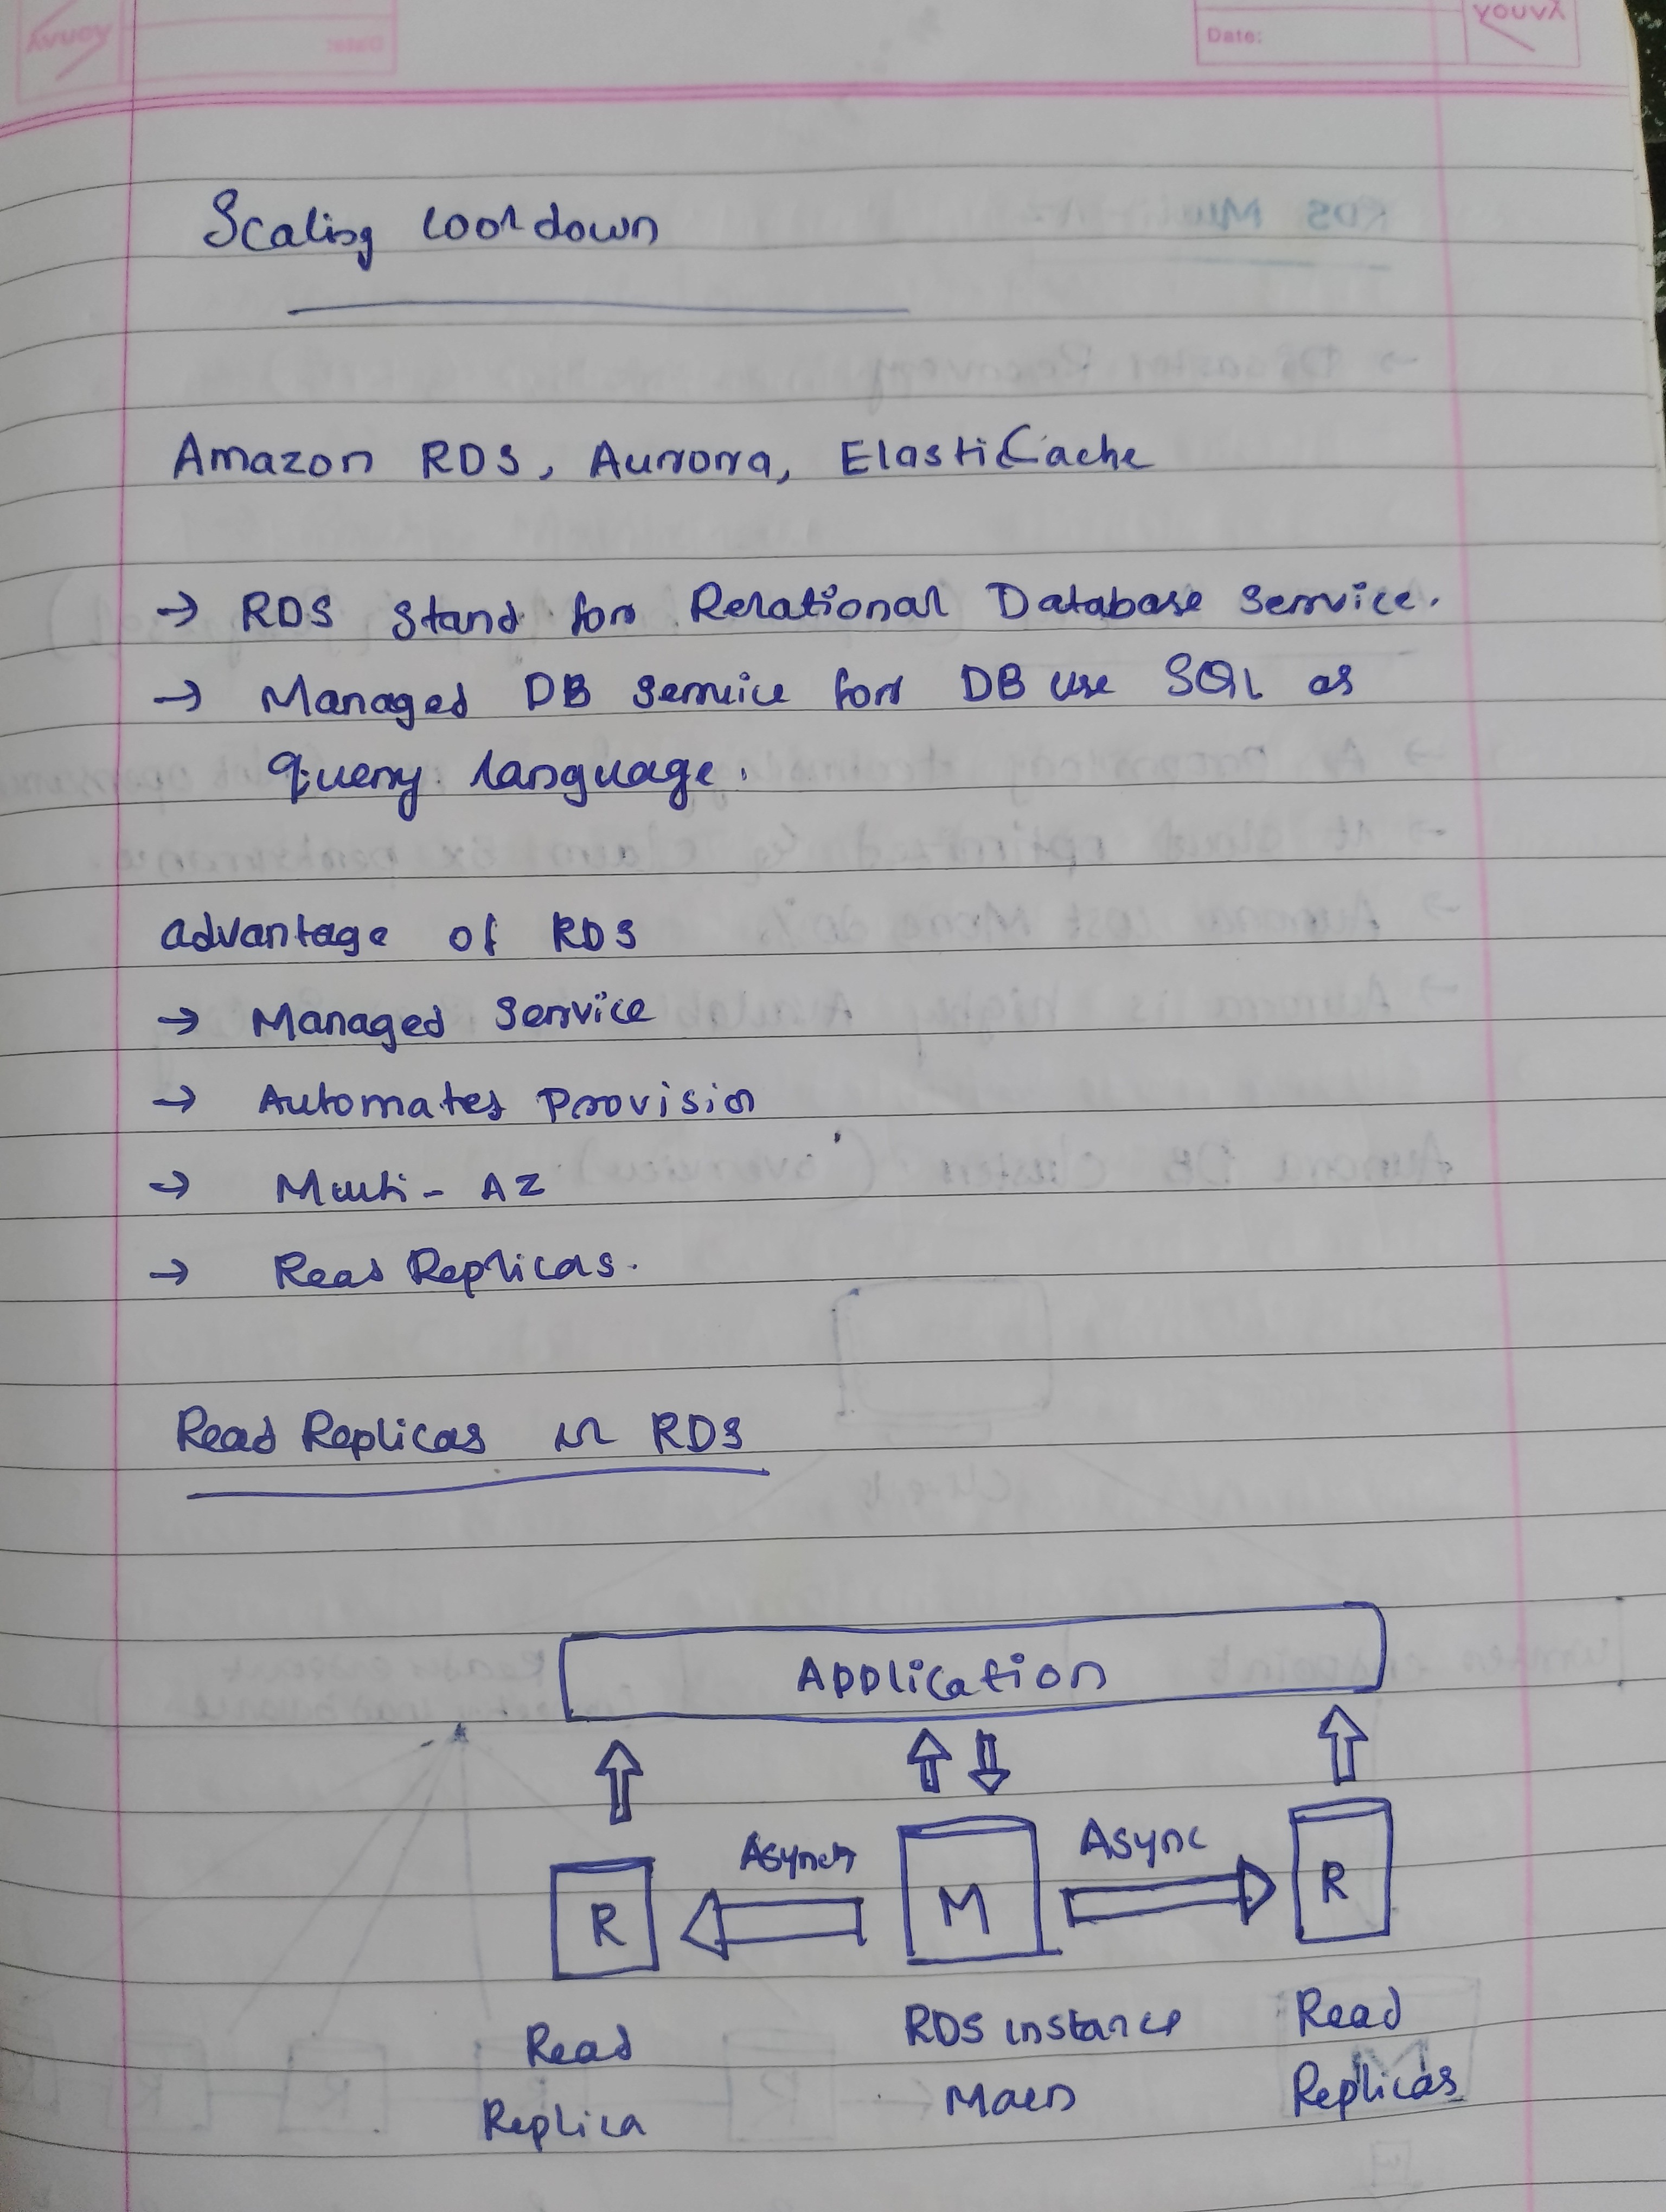 Date:
YOUVA
Scaling cooldown
Amazon RDS, Aurora, ElastiCache
→ RDS stand for Relational Database Service.
→ Managed DB Service for DB use SQL as
query language.
advantage of RDS
→ Managed Service
→ Automates Provision
→ Multi-AZ
→ Read Replicas.
Read Replicas in RDS
Application
Async Async
R M R
Read RDS instance Read
Replica Replicas